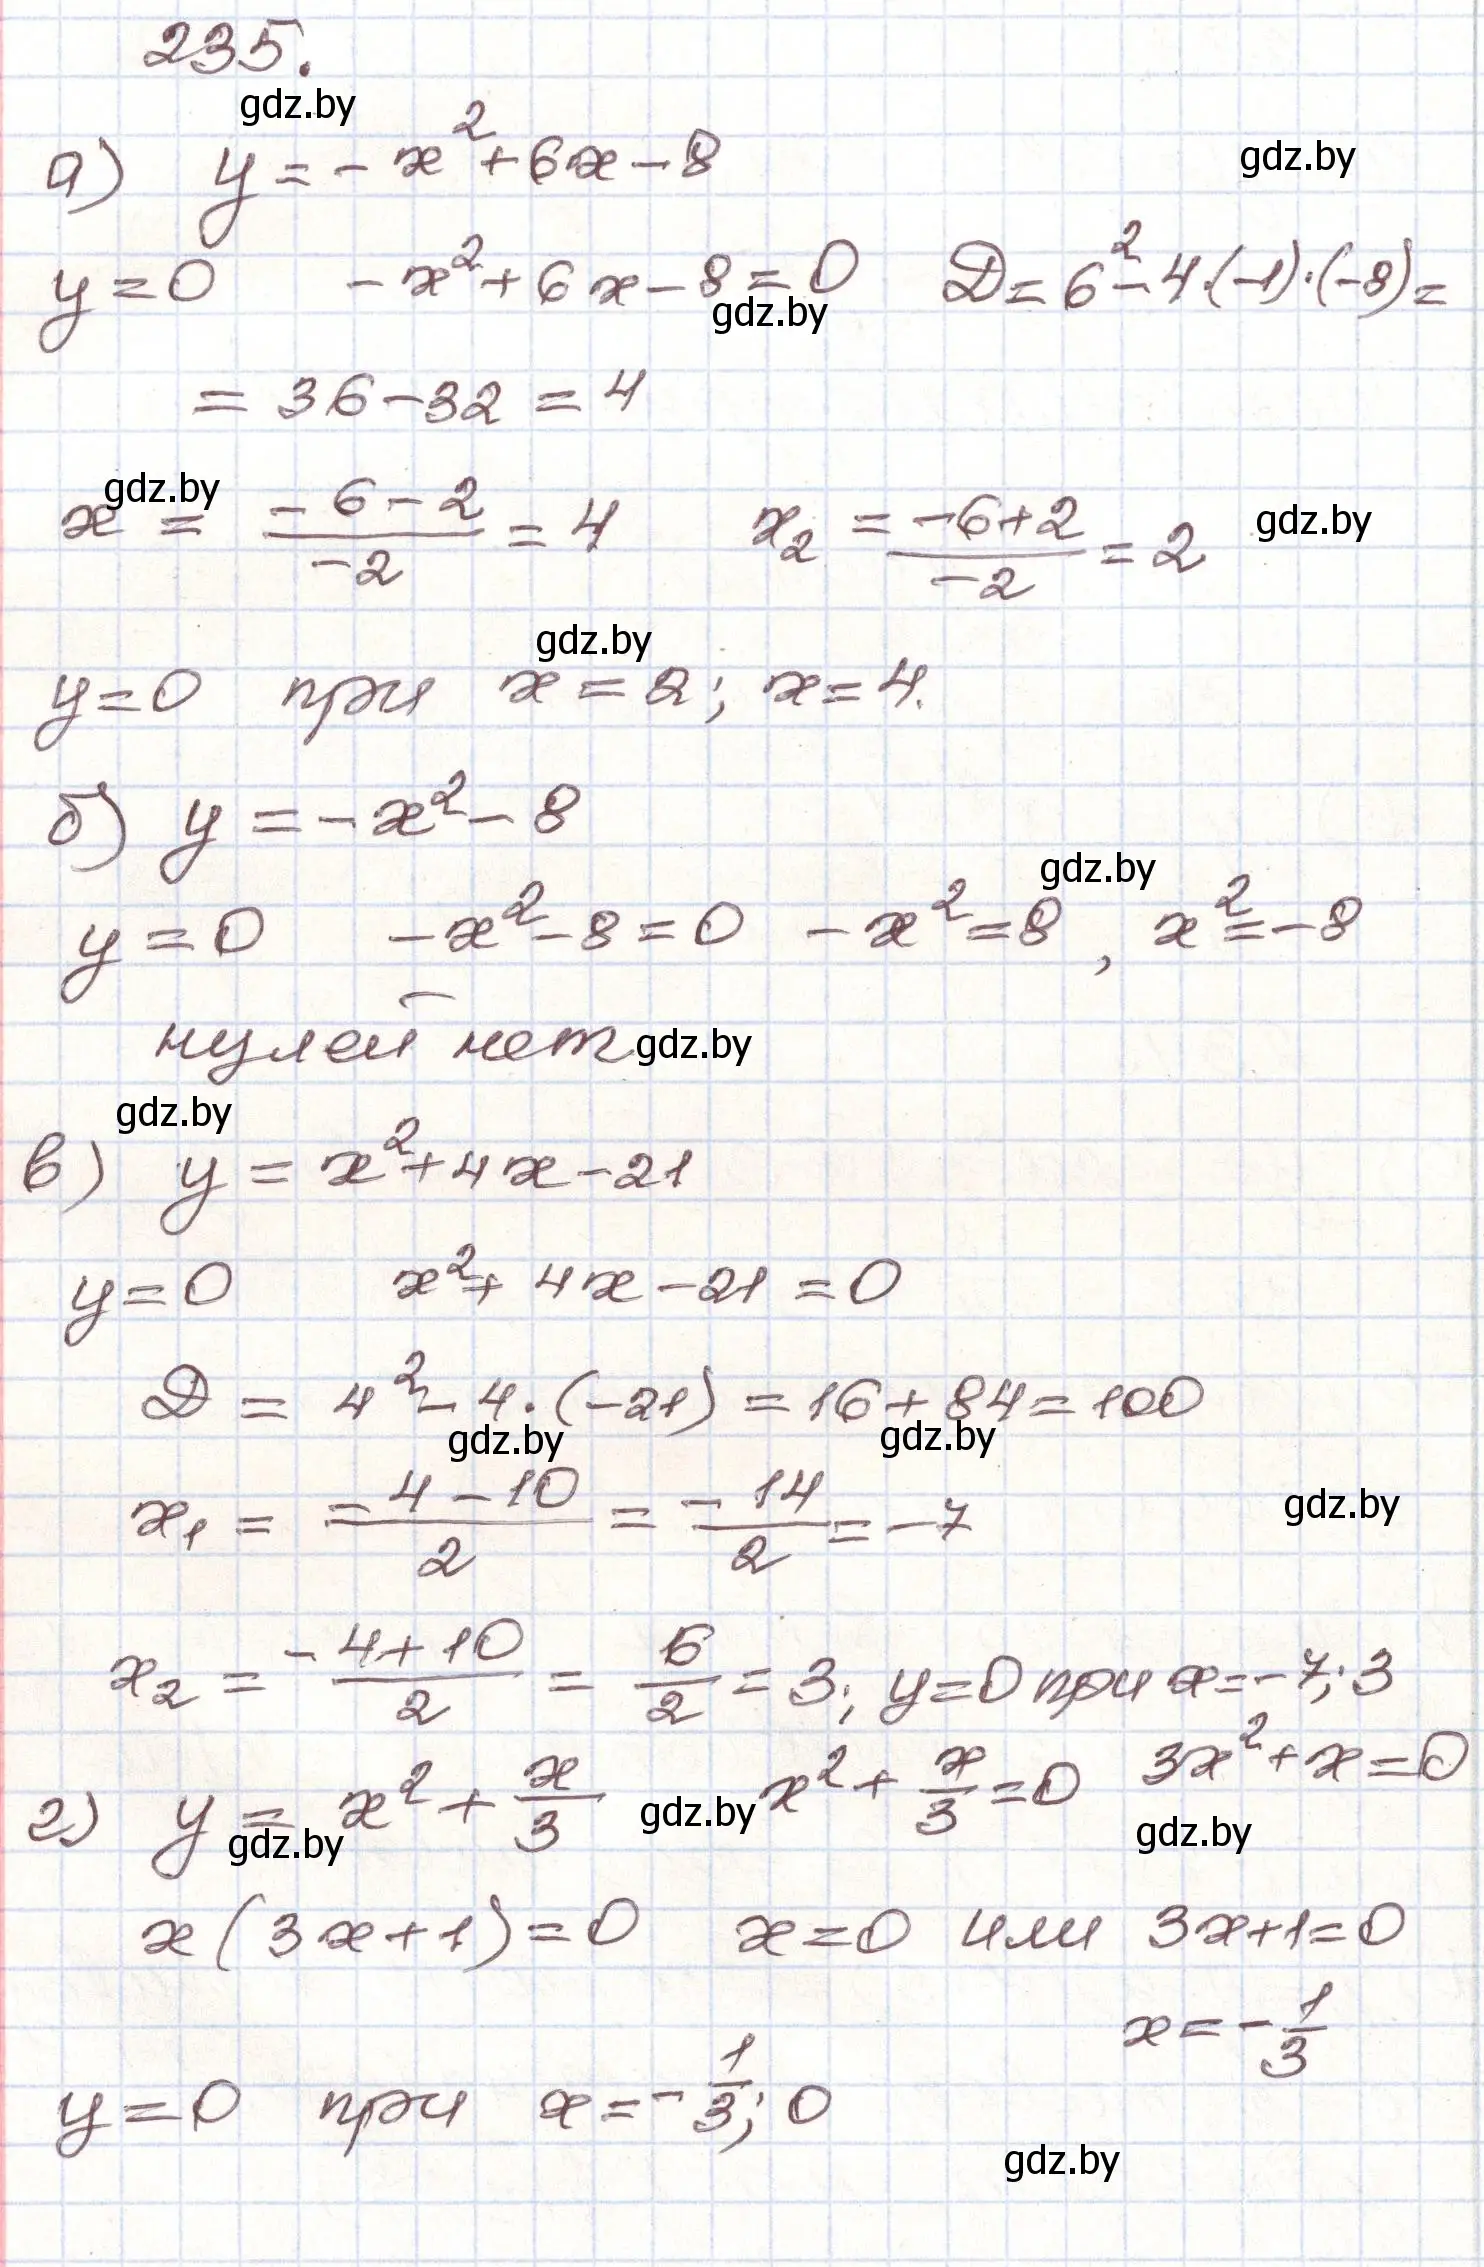 235.
gdz.by
а) y = -x² + 6x - 8
gdz.by
y = 0 -x² + 6x - 8 = 0 D = 6² - 4·(-1)·(-8) =
gdz.by
= 36 - 32 = 4
gdz.by
x = (-6-2)/(-2) = 4 x₂ = (-6+2)/(-2) = 2
gdz.by
gdz.by
y = 0 при x = 2; x = 4.
б) y = -x² - 8
gdz.by
y = 0 -x² - 8 = 0 -x² = 8, x² = -8
нулей нет
gdz.by
gdz.by
в) y = x² + 4x - 21
y = 0 x² + 4x - 21 = 0
D = 4² - 4·(-21) = 16 + 84 = 100
gdz.by
gdz.by
x₁ = (-4-10)/2 = -14/2 = -7
gdz.by
x₂ = (-4+10)/2 = 6/2 = 3; y = 0 при x = -7; 3
г) y = x² + x/3 x² + x/3 = 0 3x² + x = 0
gdz.by
gdz.by
gdz.by
x(3x+1) = 0 x = 0 или 3x+1 = 0
x = -1/3
y = 0 при x = -1/3; 0
gdz.by